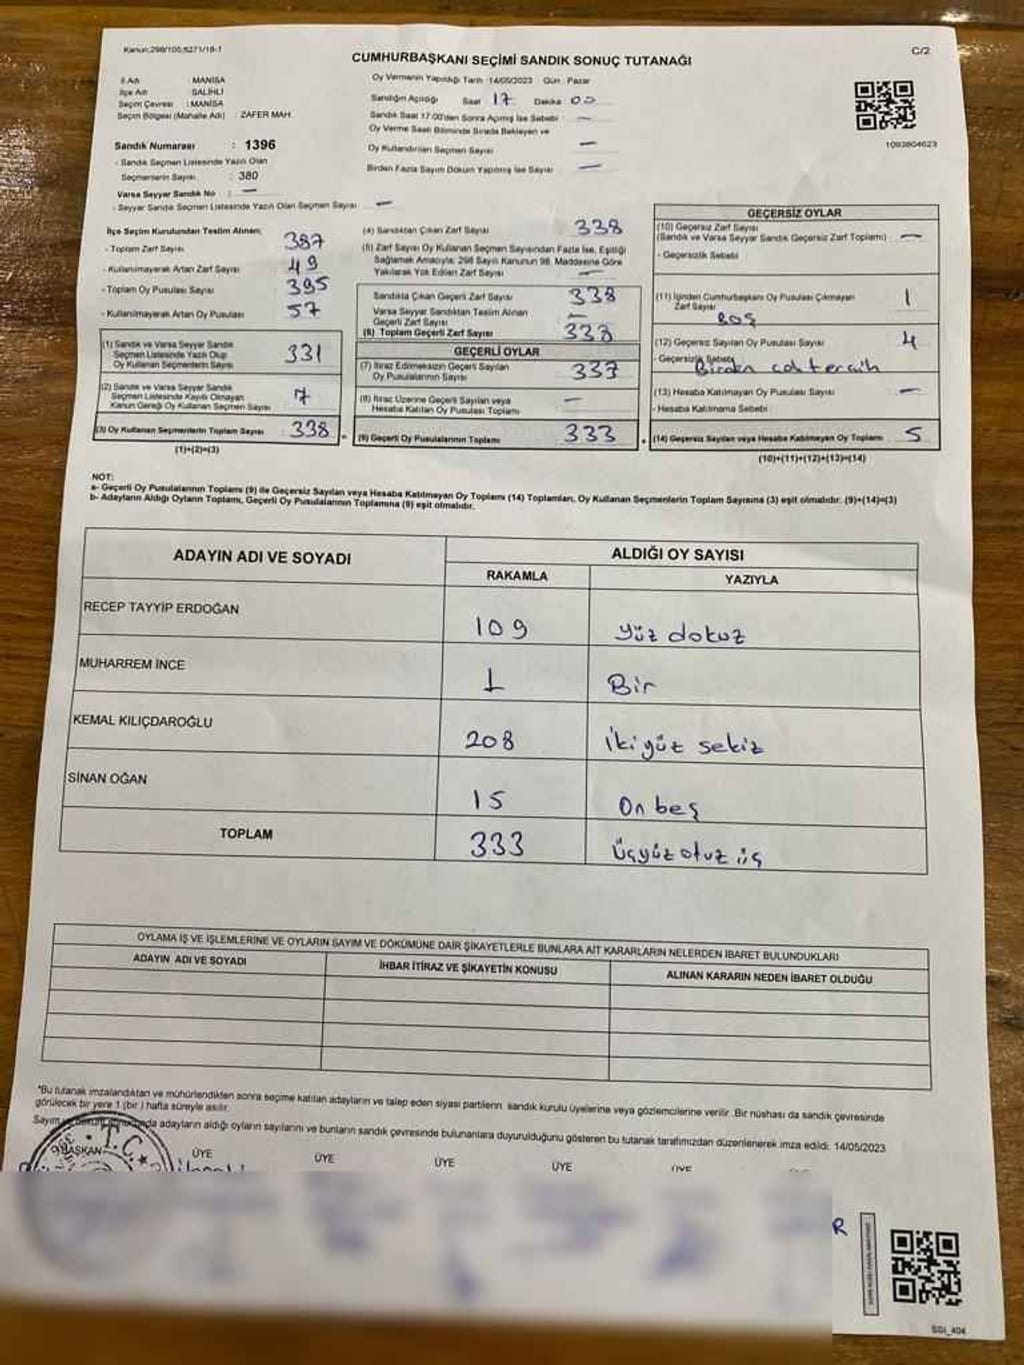 Kanun:298/105,6271/18-1
C/2
CUMHURBAŞKANI SEÇİMİ SANDIK SONUÇ TUTANAĞI
İl Adı : MANİSA
İlçe Adı : SALİHLİ
Seçim Çevresi : MANİSA
Seçim Bölgesi (Mahalle Adı) : ZAFER MAH.
Oy Vermenin Yapıldığı Tarih :14/05/2023 Gün : Pazar
Sandığın Açıldığı Saat 17 Dakika 00
Sandık Saat 17:00'den Sonra Açılmış İse Sebebi : —
Oy Verme Saati Bitiminde Sırada Bekleyen ve
Oy Kullandırılan Seçmen Sayısı —
Birden Fazla Sayım Döküm Yapılmış İse Sayısı —
1093804623
Sandık Numarası : 1396
- Sandık Seçmen Listesinde Yazılı Olan
Seçmenlerin Sayısı : 380
Varsa Seyyar Sandık No : —
- Seyyar Sandık Seçmen Listesinde Yazılı Olan Seçmen Sayısı —
İlçe Seçim Kurulundan Teslim Alınan;
- Toplam Zarf Sayısı 387
- Kullanılmayarak Artan Zarf Sayısı 49
- Toplam Oy Pusulası Sayısı 395
- Kullanılmayarak Artan Oy Pusulası 57
(1) Sandık ve Varsa Seyyar Sandık
Seçmen Listesinde Yazılı Olup
Oy Kullanan Seçmenlerin Sayısı 331
(2) Sandık ve Varsa Seyyar Sandık
Seçmen Listesinde Kayıtlı Olmayan
Kanun Gereği Oy Kullanan Seçmen Sayısı 7
(3) Oy Kullanan Seçmenlerin Toplam Sayısı 338
(1)+(2)=(3)
(4) Sandıktan Çıkan Zarf Sayısı 338
(5) Zarf Sayısı Oy Kullanan Seçmen Sayısından Fazla İse, Eşitliği
Sağlamak Amacıyla; 298 Sayılı Kanunun 98. Maddesine Göre
Yakılarak Yok Edilen Zarf Sayısı —
Sandıkta Çıkan Geçerli Zarf Sayısı 338
Varsa Seyyar Sandıktan Teslim Alınan
Geçerli Zarf Sayısı —
(6) Toplam Geçerli Zarf Sayısı 338
GEÇERLİ OYLAR
(7) İtiraz Edilmeksizin Geçerli Sayılan
Oy Pusulalarının Sayısı 337
(8) İtiraz Üzerine Geçerli Sayılan veya
Hesaba Katılan Oy Pusulası Toplamı —
(9) Geçerli Oy Pusulalarının Toplamı 333
GEÇERSİZ OYLAR
(10) Geçersiz Zarf Sayısı
(Sandık ve Varsa Seyyar Sandık Geçersiz Zarf Toplamı) —
- Geçersizlik Sebebi
(11) İçinden Cumhurbaşkanı Oy Pusulası Çıkmayan
Zarf Sayısı 1
Boş
(12) Geçersiz Sayılan Oy Pusulası Sayısı 4
- Geçersizlik Sebebi Birden çok tercih
(13) Hesaba Katılmayan Oy Pusulası Sayısı —
- Hesaba Katılmama Sebebi
(14) Geçersiz Sayılan veya Hesaba Katılmayan Oy Toplamı 5
(10)+(11)+(12)+(13)=(14)
NOT:
a- Geçerli Oy Pusulalarının Toplamı (9) ile Geçersiz Sayılan veya Hesaba Katılmayan Oy Toplamı (14) Toplamları, Oy Kullanan Seçmenlerin Toplam Sayısına (3) eşit olmalıdır. (9)+(14)=(3)
b- Adayların Aldığı Oyların Toplamı, Geçerli Oy Pusulalarının Toplamına (9) eşit olmalıdır.
ADAYIN ADI VE SOYADI
ALDIĞI OY SAYISI
RAKAMLA
YAZIYLA
RECEP TAYYİP ERDOĞAN 109 yüz dokuz
MUHARREM İNCE 1 Bir
KEMAL KILIÇDAROĞLU 208 ikiyüz sekiz
SİNAN OĞAN 15 On beş
TOPLAM 333 üçyüz otuz üç
OYLAMA İŞ VE İŞLEMLERİNE VE OYLARIN SAYIM VE DÖKÜMÜNE DAİR ŞİKAYETLERLE BUNLARA AİT KARARLARIN NELERDEN İBARET BULUNDUKLARI
ADAYIN ADI VE SOYADI
İHBAR İTİRAZ VE ŞİKAYETİN KONUSU
ALINAN KARARIN NEDEN İBARET OLDUĞU
*Bu tutanak imzalandıktan ve mühürlendikten sonra seçime katılan adayların ve talep eden siyasi partilerin sandık kurulu üyelerine veya gözlemcilerine verilir. Bir nüshası da sandık çevresinde
görülecek bir yere 1 (bir) hafta süreyle asılır.
Sayım adayların aldığı oyların sayılarını ve bunların sandık çevresinde bulunanlara duyurulduğunu gösteren bu tutanak tarafımızdan düzenlenerek imza edildi. 14/05/2023
BAŞKAN ÜYE ÜYE ÜYE ÜYE ÜYE
T.C.
R
SGI_404